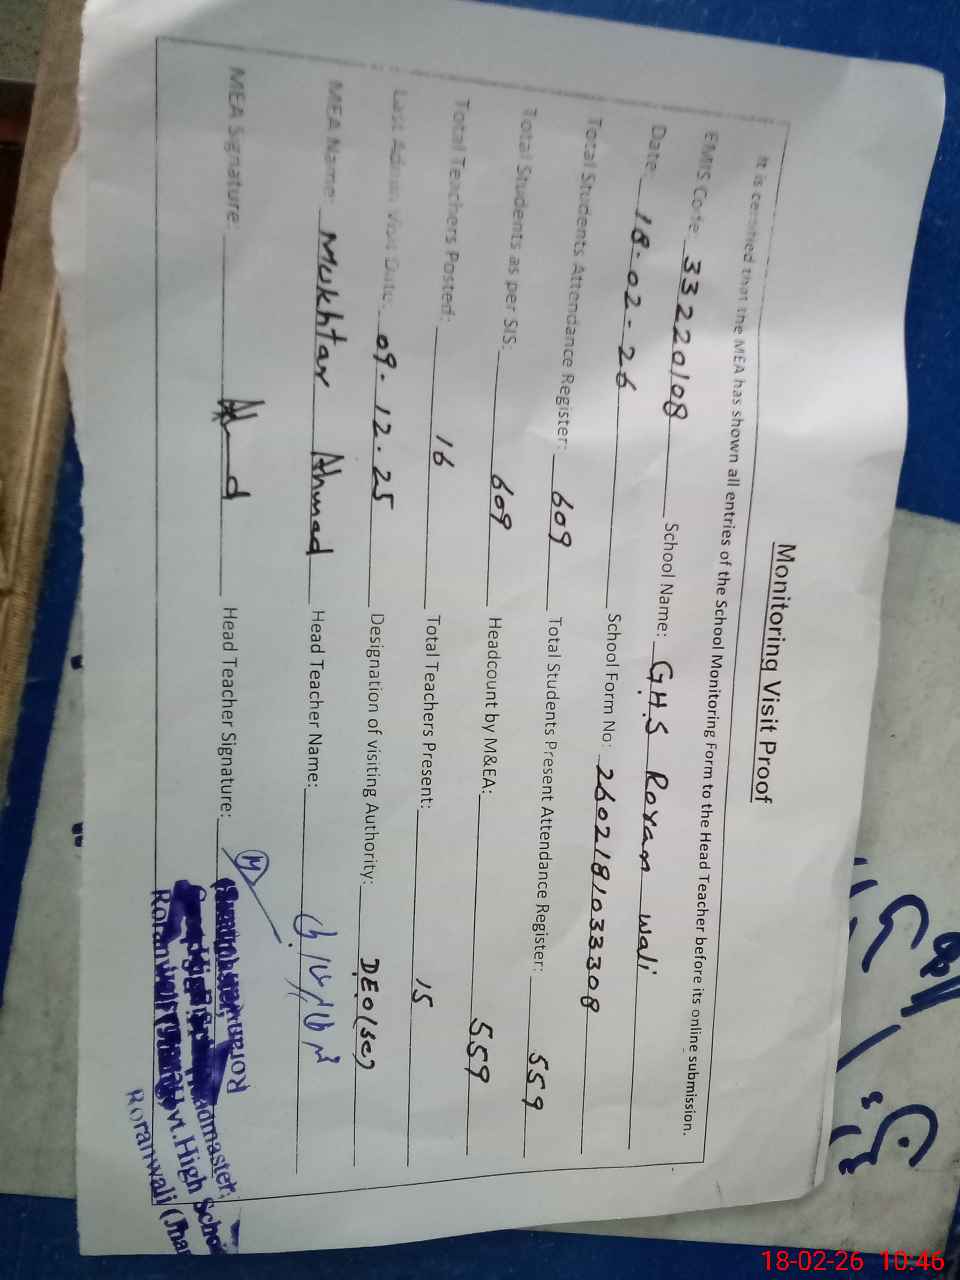 Monitoring Visit Proof
It is certified that the MEA has shown all entries of the School Monitoring Form to the Head Teacher before its online submission.
EMIS Code: 33220108 School Name: G.H.S Roran wali
Date: 18-02-26 School Form No: 2602181033308
Total Students Attendance Register: 609 Total Students Present Attendance Register: 559
Total Students as per SIS: 609 Headcount by M&EA: 559
Total Teachers Posted: 16 Total Teachers Present: 15
Last Admin Visit Date: 09-12-25 Designation of visiting Authority: DEO(Sec)
MEA Name: Mukhtar Ahmad Head Teacher Name:
MEA Signature: Head Teacher Signature:
Roranwali
18-02-26 10:46